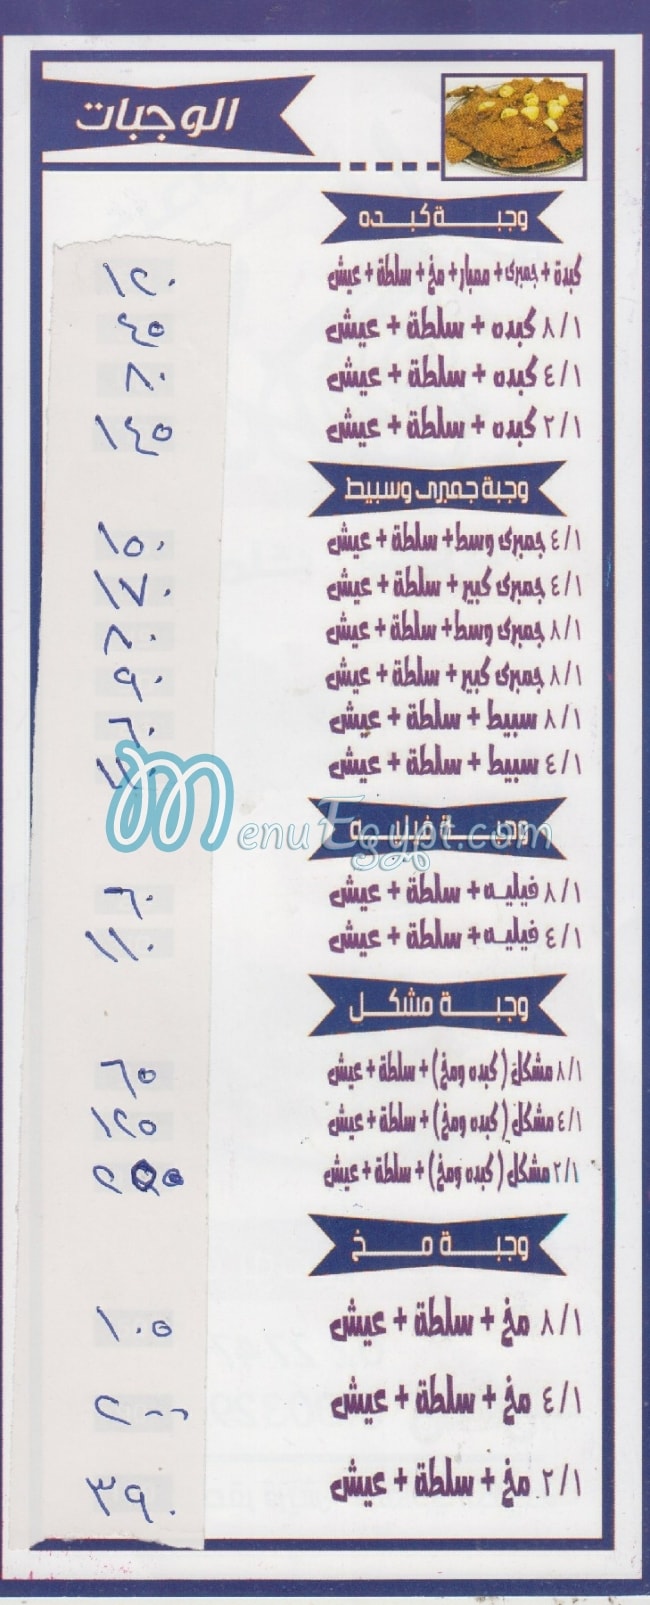 الوجبات
وجبة كبده
كبدة + جمبرى + ممبار + مخ + سلطة + عيش ١٢٠
٨/١ كبده + سلطة + عيش ٤٥
٤/١ كبده + سلطة + عيش ٨٠
٢/١ كبده + سلطة + عيش ١٤٥
وجبة جمبرى وسبيط
٤/١ جمبرى وسط + سلطة + عيش ١٥٠
٤/١ جمبرى كبير + سلطة + عيش ١٧٠
٨/١ جمبرى وسط + سلطة + عيش ٨٠
٨/١ جمبرى كبير + سلطة + عيش ٩٠
٨/١ سبيط + سلطة + عيش ٦٠
٤/١ سبيط + سلطة + عيش
MenuEgypt.com
وجبة فيليه
٨/١ فيليه + سلطة + عيش ٦٠
٤/١ فيليه + سلطة + عيش ١١٠
وجبة مشكل
٨/١ مشكل (كبده ومخ) + سلطة + عيش ٦٥
٤/١ مشكل (كبده ومخ) + سلطة + عيش ١٢٥
٢/١ مشكل (كبده ومخ) + سلطة + عيش
وجبة مخ
٨/١ مخ + سلطة + عيش ١٠٥
٤/١ مخ + سلطة + عيش ٢٠٠
٢/١ مخ + سلطة + عيش ٣٩٠